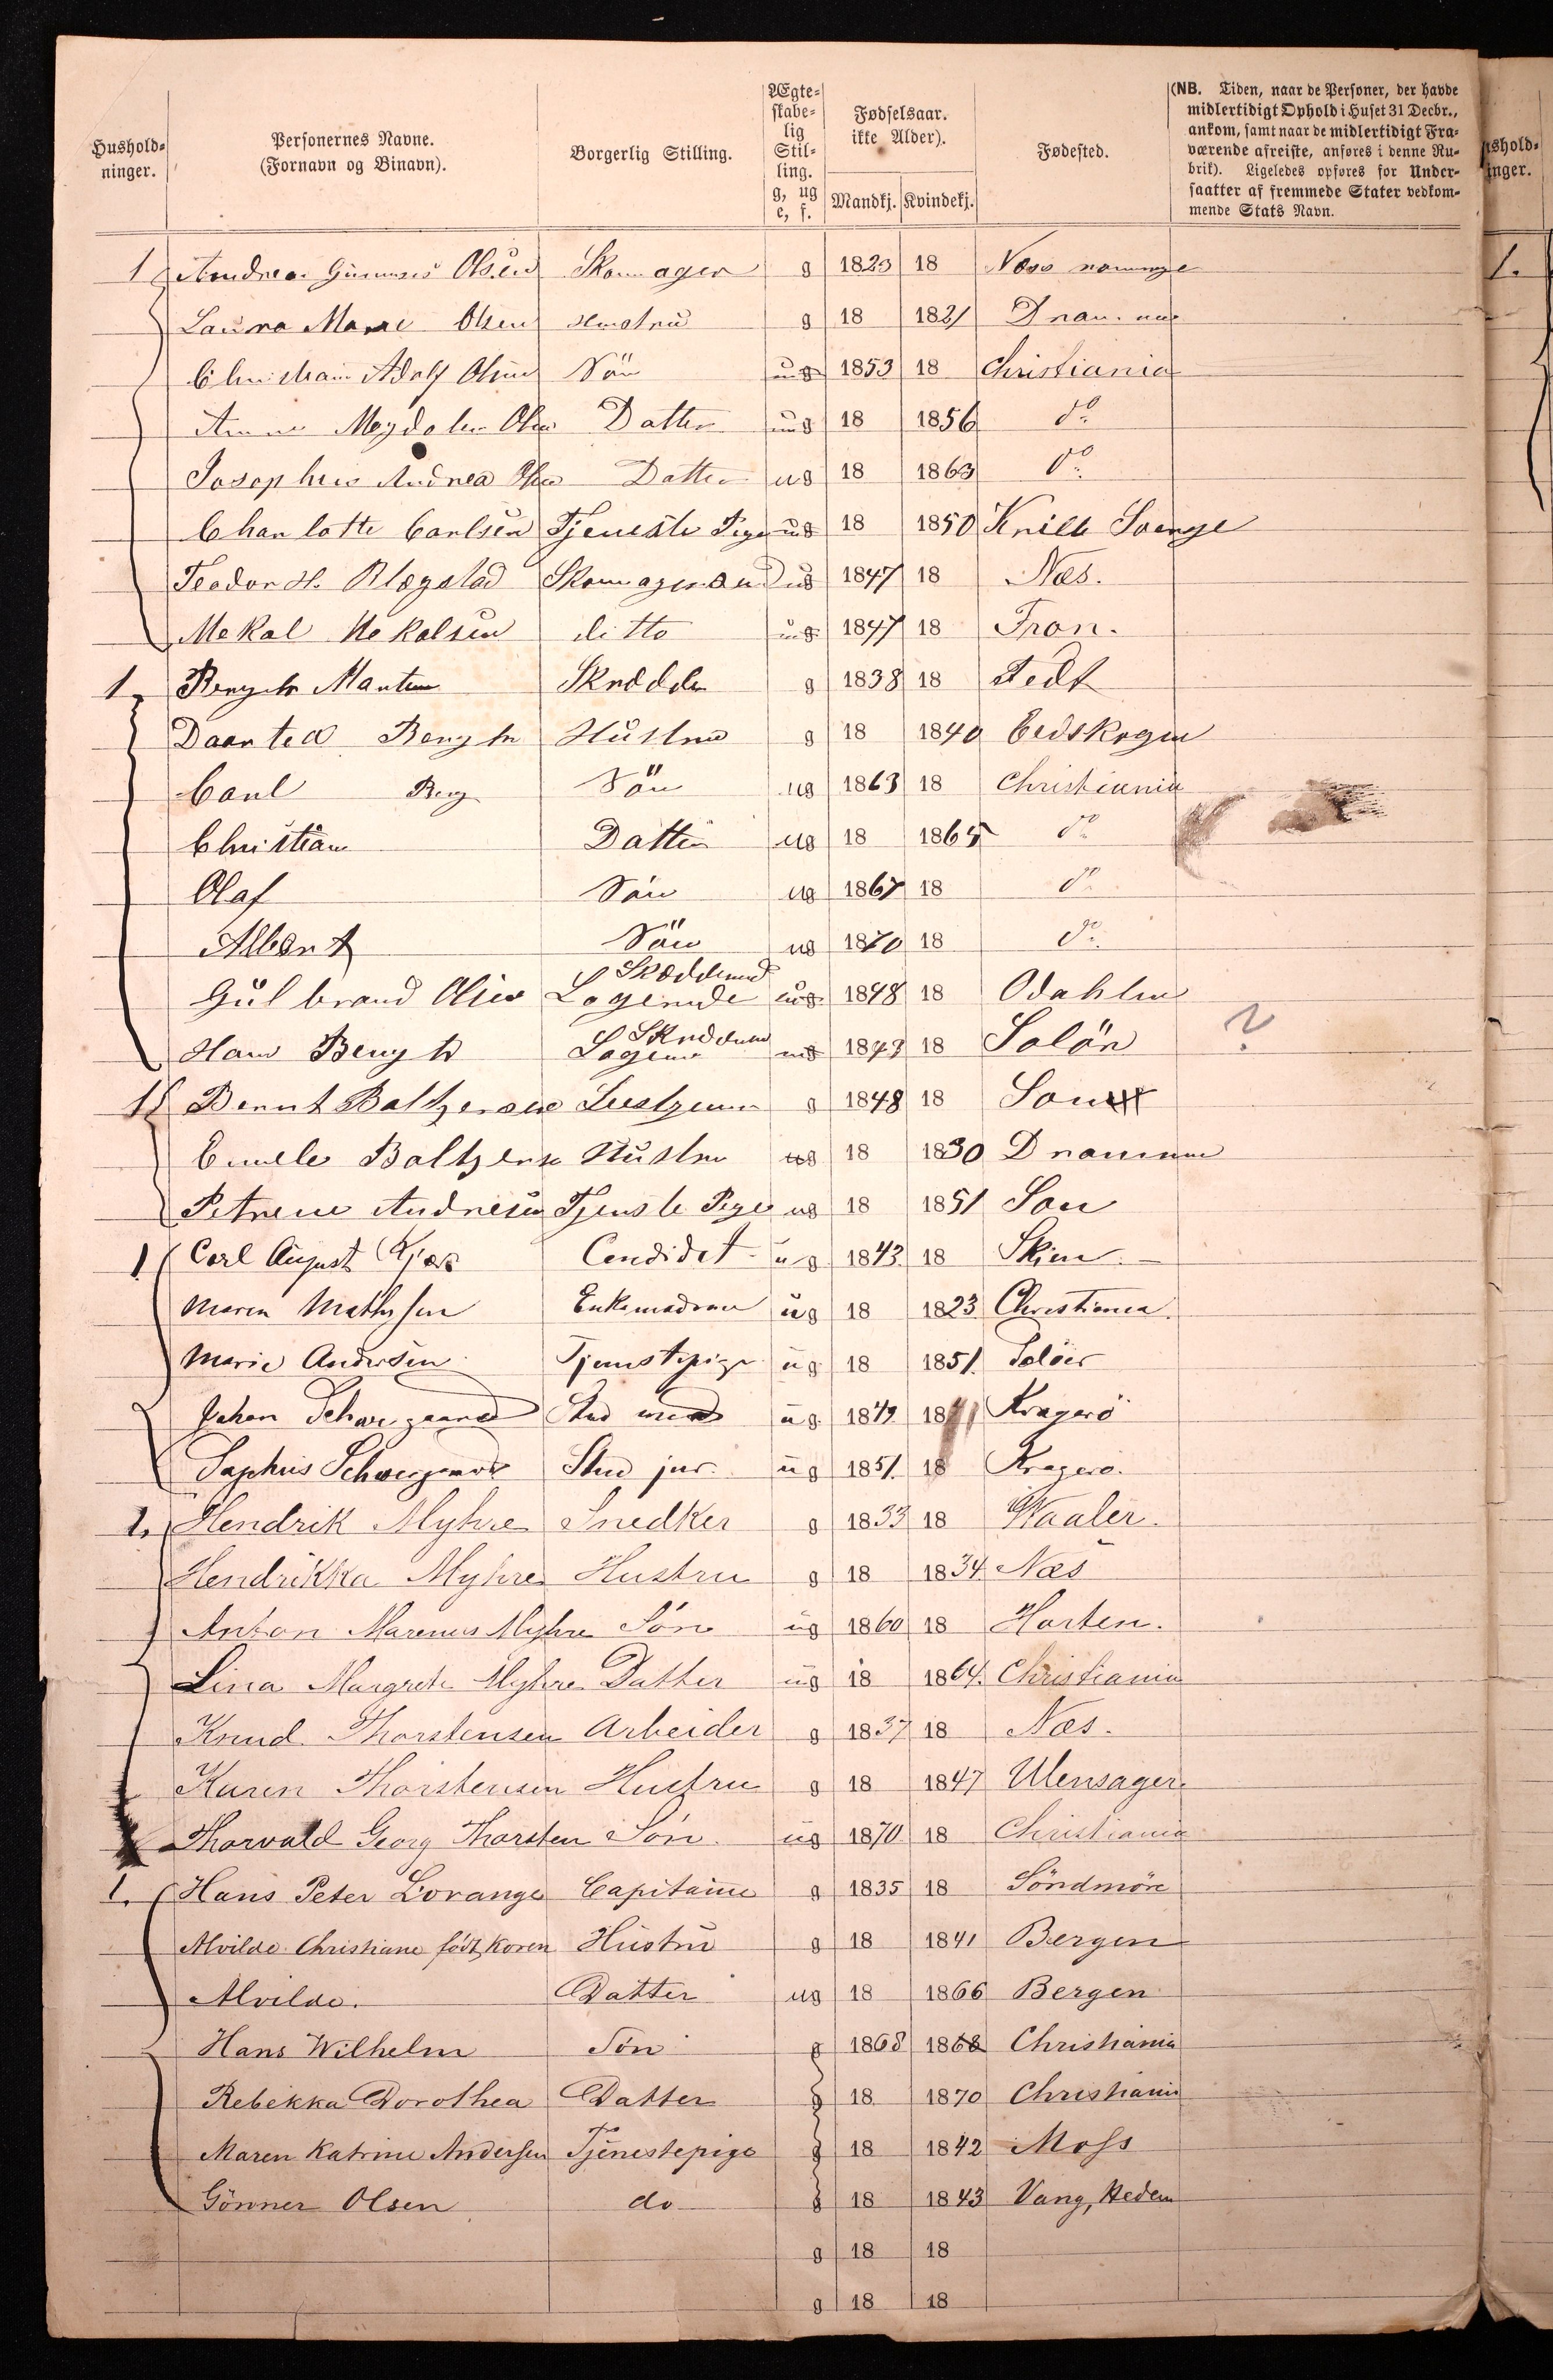 Hushold-
ninger.
Personernes Navne.
(Fornavn og Binavn).
Borgerlig Stilling.
Ægte-
skabe-
lig
Stil-
ling.
g, ug
e, f.
Fødselsaar.
ikke Alder).
Mandkj. Kvindekj.
Fødested.
(NB. Tiden, naar de Personer, der havde
midlertidigt Ophold i Huset 31 Decbr.,
ankom, samt naar de midlertidigt Fra-
værende afreiste, anføres i denne Ru-
brik). Ligeledes opføres for Under-
saatter af fremmede Stater vedkom-
mende Stats Navn.
1 Andreas Olsen Skomager g 1823 18 Næss
Laura Marie Olsen Hustru g 18 1821
Christian Adolf Olsen Sön ug 1853 18 Christiania
Anne Magdalen Olsen Datter ug 18 1856 do
Josephine Andrea Olsen Datter ug 18 1863 do
Charlotte Carlsen Tjeneste Pige ug 18 1850
Teodor H. Skomagersvend ug 1847 18 Næs.
Mekal Mekalsen ditto ug 1847 18 Tron.
1 Bength Martin Skrædder g 1838 18
Bength Hustru g 18 1840 Eedskogen
Carl Beng Sön ug 1863 18 Christiania
Christian Datter ug 18 1865 do
Olaf Sön ug 1867 18 do
Albert Sön ug 1870 18 do
Gülbrand Olsen Logerende ug 1848 18 Odahlen
Hans Bength ug 1843 18 Solör
?
1 Bernt Baltzersen g 1848 18 Son
Emele Baltzersen Hustru g 18 1830 Drammen
Petrene Andresen Tjenste Pige ug 18 1851 Son
1 Carl August Kjær Candidat ug 1843 18 Skien
Maren Mathisen Enkemadame ug 18 1823 Christiania.
Marie Andersen Tjenstepige ug 18 1851. Solöer
Johan Schweigaard Stud med ug 1849 18 Kragerö
Sophus Schweigaard Stud jur. ug 1851. 18 Kragerö.
1. Hendrik Myhre Snedker g 1833 18 Waaler.
Hendrikka Myhre Hustru g 18 1834. Næs
Anton Marenus Myhre Sön ug 1860 18 Horten.
Lina Margrete Myhre Datter ug 18 1864. Christiania
Knud Thorstensen Arbeider g 1837 18 Næs.
Karen Thorstensen Hustru g 18 1847 Ulensager.
Thorvald Georg Thorsten Sön. ug 1870 18 Christiania
1. Hans Peter L'orange Capitaine g 1835 18 Söndmöre
Alvilde Christiane födt Koren Hustru g 18 1841 Bergen
Alvilde. Datter ug 18 1866 Bergen
Hans Wilhelm Sön g 1868 1868 Christiania
Rebekka Dorothea Datter g 18 1870 Christiania
Maren Katrine Andersen Tjenestepige g 18 1842 Moss
Gönner Olsen do g 18 1843 Vang, Hedem
g 18 18
g 18 18